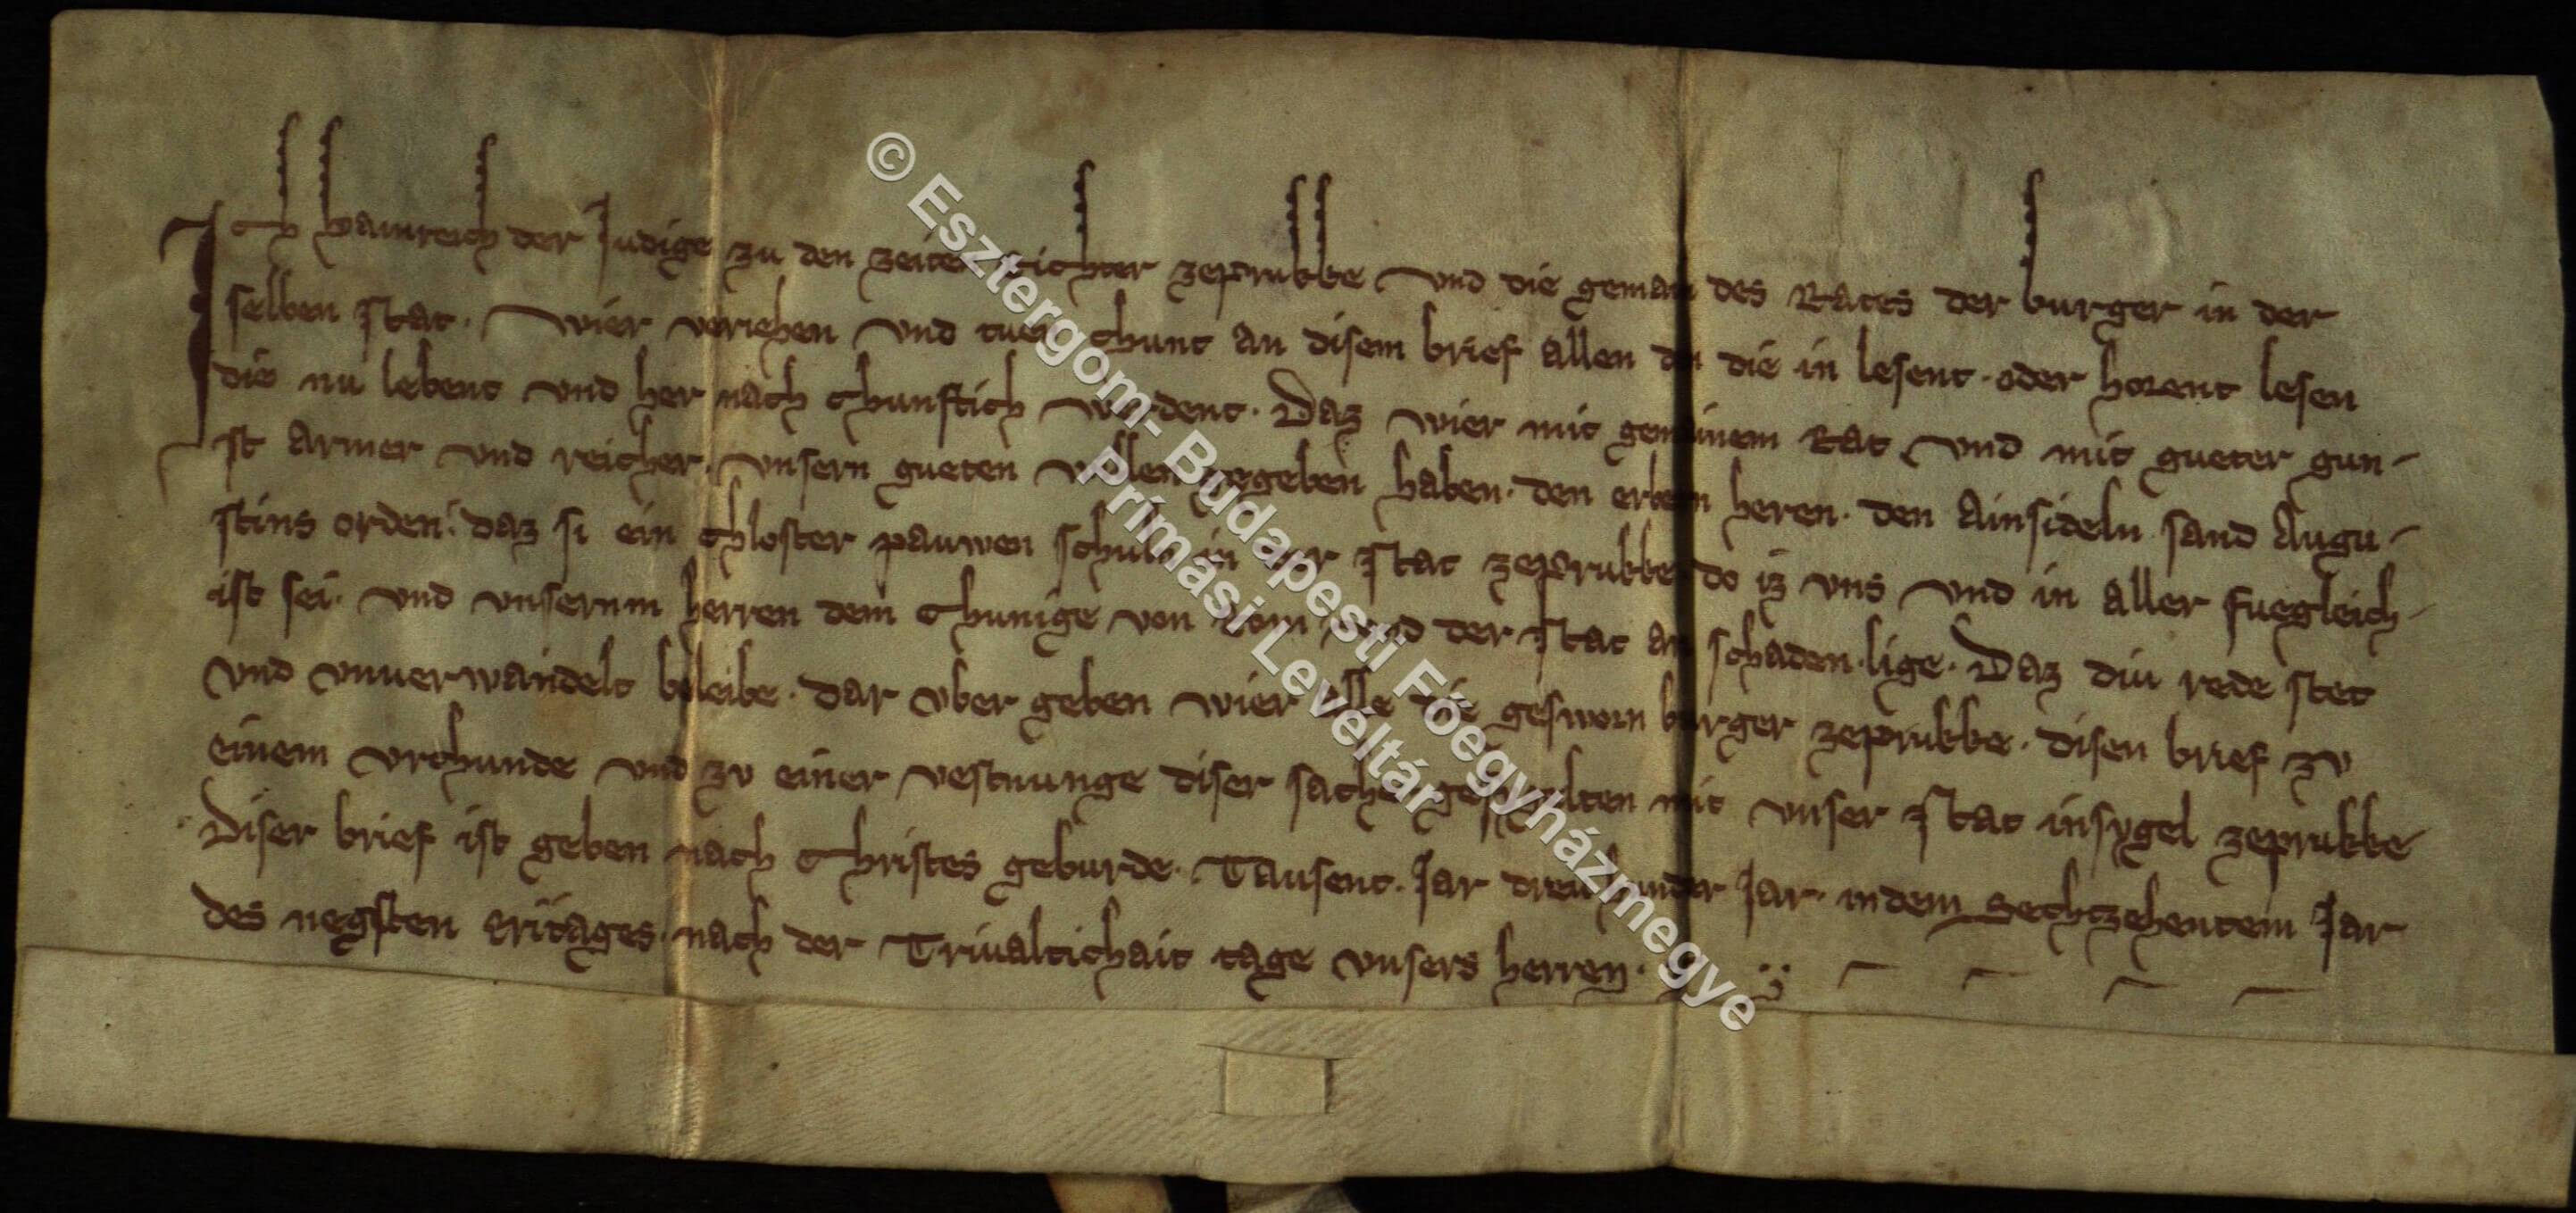 Ich Hainreich der Judige zu den zeiten Richter zeprukke und die gemain des Rates der burger in der
selben stat. Wier veriehen und tuen chunt an disem brief allen den die in lesent. oder horent lesen
die nu lebent und her nach chunftich werdent. Daz wier mit gemainem Rat und mit gueter gun-
st armer und reicher. unsern gueten willen gegeben haben. den erbern heren. den Ainsideln sand Augu-
stins orden. daz si ein chloster pauwen schuln in der stat zeprukke do iz uns und in aller fuegleich-
ist sei. und unserm herren dem chunige von Rom und der stat an schaden lige. Daz diu rede stet
und unuerwandelt beleibe. dar uber geben wier alle die gesworn burger zeprukke. disen brief zv
einem vrchunde und zv einer vestnunge diser sache gesigelten mit unser stat insygel zeprukke
diser brief ist geben nach Christes geburde. Tausent. Jar dreuhunder Jar. in dem Sechtzehentem Jar
des negsten eritages. nach der Triualtichait tage unsers herren.
© Esztergom-Budapesti Főegyházmegye
Prímási Levéltár